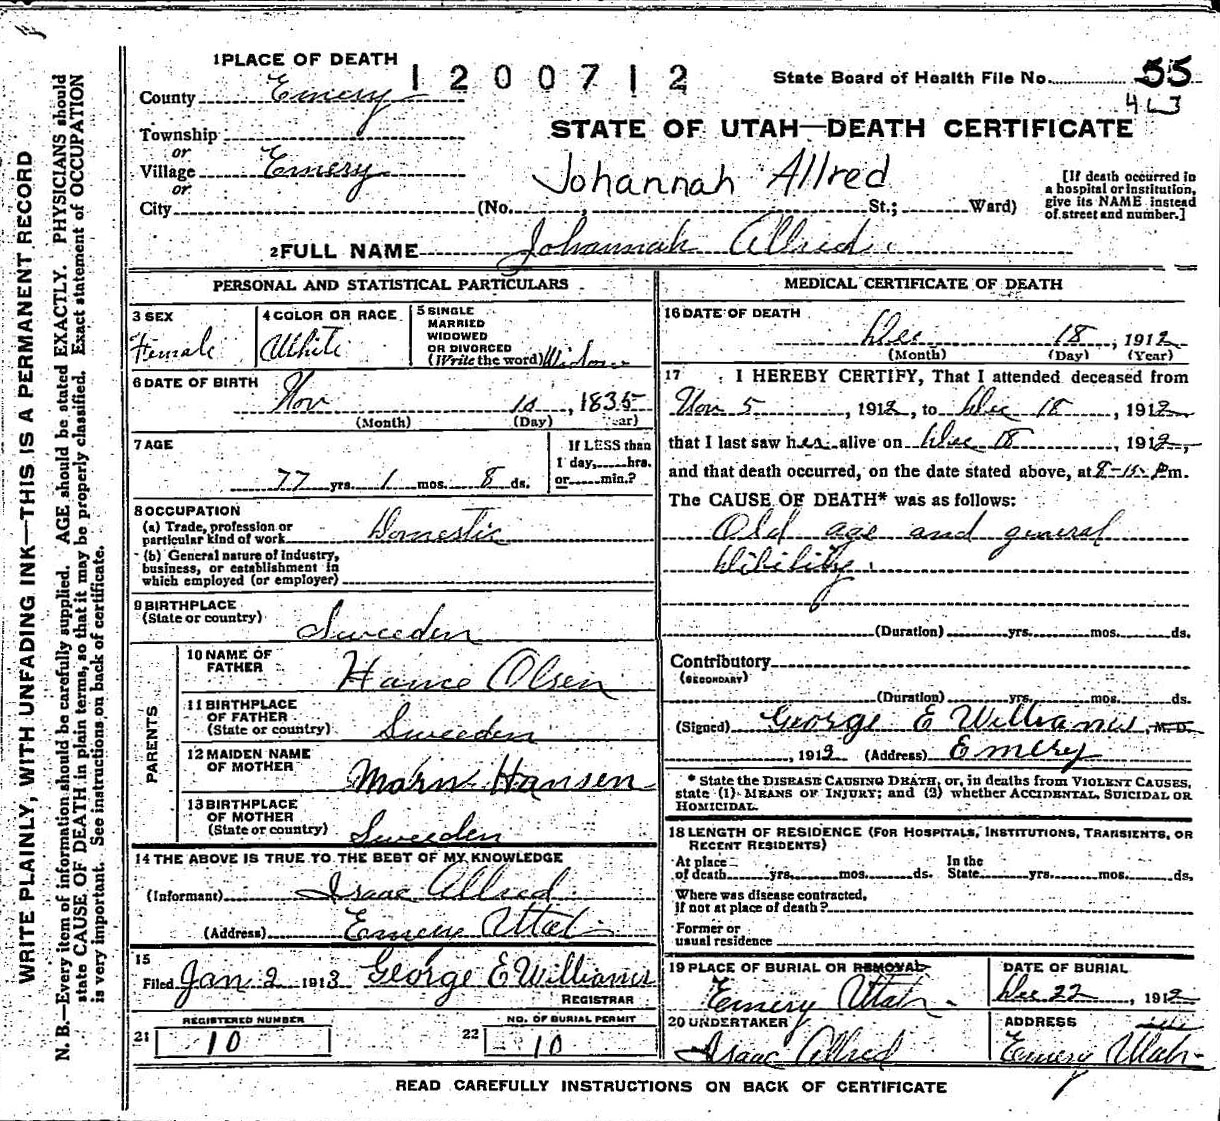 WRITE PLAINLY, WITH UNFADING INK—THIS IS A PERMANENT RECORD
N. B.—Every item of information should be carefully supplied. AGE should be stated EXACTLY. PHYSICIANS should
state CAUSE OF DEATH in plain terms, so that it may be properly classified. Exact statement of OCCUPATION
is very important. See instructions on back of certificate.
1 PLACE OF DEATH
1200712
State Board of Health File No. 55
County Emery
Township
or
STATE OF UTAH—DEATH CERTIFICATE
Village Emery
or
Johannah Allred
[If death occurred in
a hospital or institution,
give its NAME instead
of street and number.]
City (No. , St.; Ward)
2 FULL NAME Johannah Allred
PERSONAL AND STATISTICAL PARTICULARS
3 SEX
Female
4 COLOR OR RACE
White
5 SINGLE
MARRIED
WIDOWED
OR DIVORCED
(Write the word) Widow
6 DATE OF BIRTH
Nov 10, 1835
(Month) (Day) (Year)
7 AGE
77 yrs. 1 mos. 8 ds.
If LESS than
1 day, hrs.
or min.?
8 OCCUPATION
(a) Trade, profession or
particular kind of work Domestic
(b) General nature of industry,
business, or establishment in
which employed (or employer)
9 BIRTHPLACE
(State or country) Sweeden
PARENTS
10 NAME OF
FATHER Olsen
11 BIRTHPLACE
OF FATHER
(State or country) Sweeden
12 MAIDEN NAME
OF MOTHER Hansen
13 BIRTHPLACE
OF MOTHER
(State or country) Sweeden
14 THE ABOVE IS TRUE TO THE BEST OF MY KNOWLEDGE
(Informant) Isaac Allred
(Address) Emery Utah
15
Filed Jan 2 1913 George E Williams
REGISTRAR
REGISTERED NUMBER
21 10
NO. OF BURIAL PERMIT
22 10
MEDICAL CERTIFICATE OF DEATH
16 DATE OF DEATH
Dec 18, 1912
(Month) (Day) (Year)
17 I HEREBY CERTIFY, That I attended deceased from
Nov 5, 1912, to Dec 18, 1912
that I last saw her alive on Dec 18, 1912,
and that death occurred, on the date stated above, at 8-15 Pm.
The CAUSE OF DEATH* was as follows:
Old age and general
Dibility.
(Duration) yrs. mos. ds.
Contributory
(SECONDARY)
(Duration) yrs. mos. ds.
(Signed) George E Williams, M. D.
, 1912 (Address) Emery
* State the DISEASE CAUSING DEATH, or, in deaths from VIOLENT CAUSES,
state (1) MEANS OF INJURY; and (2) whether ACCIDENTAL, SUICIDAL OR
HOMICIDAL.
18 LENGTH OF RESIDENCE (FOR HOSPITALS, INSTITUTIONS, TRANSIENTS, OR
RECENT RESIDENTS)
At place
of death yrs. mos. ds.
In the
State yrs. mos. ds.
Where was disease contracted,
if not at place of death?
Former or
usual residence
19 PLACE OF BURIAL OR REMOVAL
Emery Utah
DATE OF BURIAL
Dec 22, 1912
20 UNDERTAKER
Isaac Allred
ADDRESS
Emery Utah
READ CAREFULLY INSTRUCTIONS ON BACK OF CERTIFICATE